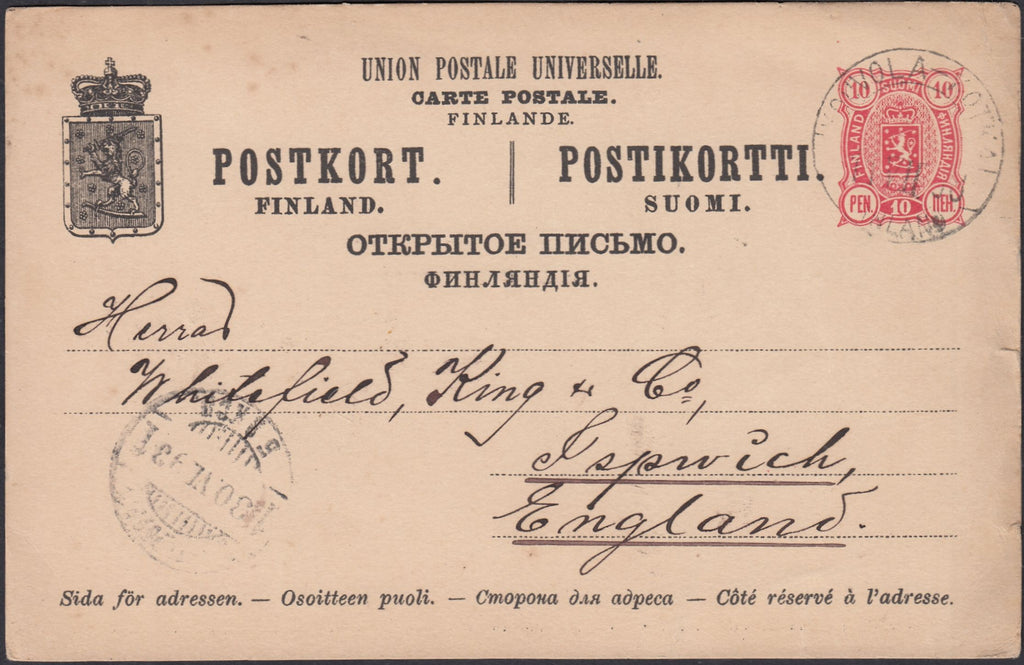 UNION POSTALE UNIVERSELLE.
CARTE POSTALE.
FINLANDE.
POSTKORT. POSTIKORTTI.
FINLAND. SUOMI.
ОТКРЫТОЕ ПИСЬМО.
ФИНЛЯНДІЯ.
10 SUOMI 10
FINLAND ФИНЛЯНДІЯ
PEN. 10 ПЕН.
Herrar
Whitefield, King & Co,
Ipswich,
England.
30 VI 93
Sida för adressen. — Osoitteen puoli. — Сторона для адреса — Côté réservé à l'adresse.